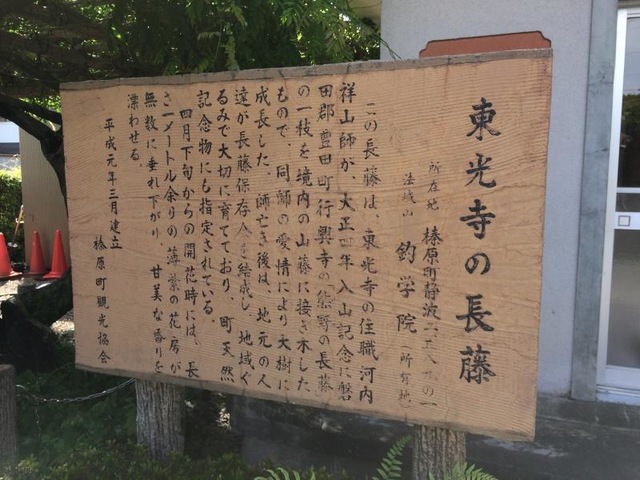 東光寺の長藤
所在地 榛原町静波二五八九の一
法城山 釣学院（所有地）
この長藤は、東光寺の住職河内
祥山師が、大正四年入山記念に磐
田郡豊田町行興寺の「熊野の長藤」
の一枝を境内の山藤に接ぎ木した
もので、同師の愛情により大樹に
成長した。師亡き後は、地元の人
達が長藤保存会を結成し、地域ぐ
るみで大切に育てており、町天然
記念物にも指定されている。
四月下旬からの開花時には、長
さ一メートル余りの薄紫の花房が
無数に垂れ下がり、甘美な香りを
漂わせる。
平成元年三月建立
榛原町観光協会